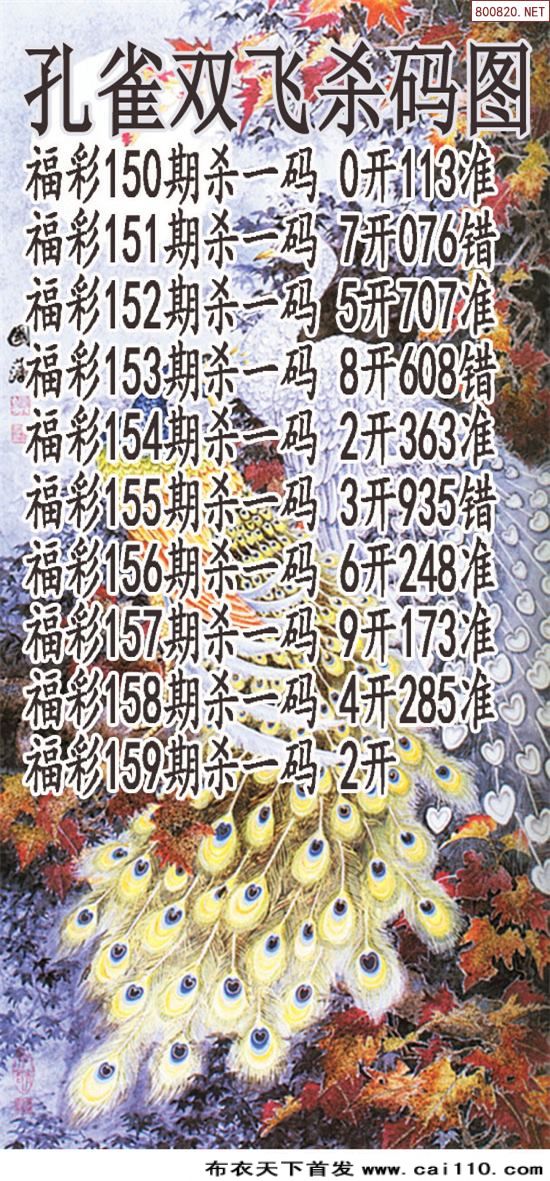 800820.NET
孔雀双飞杀码图
福彩150期杀一码 0开113准
福彩151期杀一码 7开076错
福彩152期杀一码 5开707准
福彩153期杀一码 8开608错
福彩154期杀一码 2开363准
福彩155期杀一码 3开935错
福彩156期杀一码 6开248准
福彩157期杀一码 9开173准
福彩158期杀一码 4开285准
福彩159期杀一码 2开
布衣天下首发 www.cai110.com